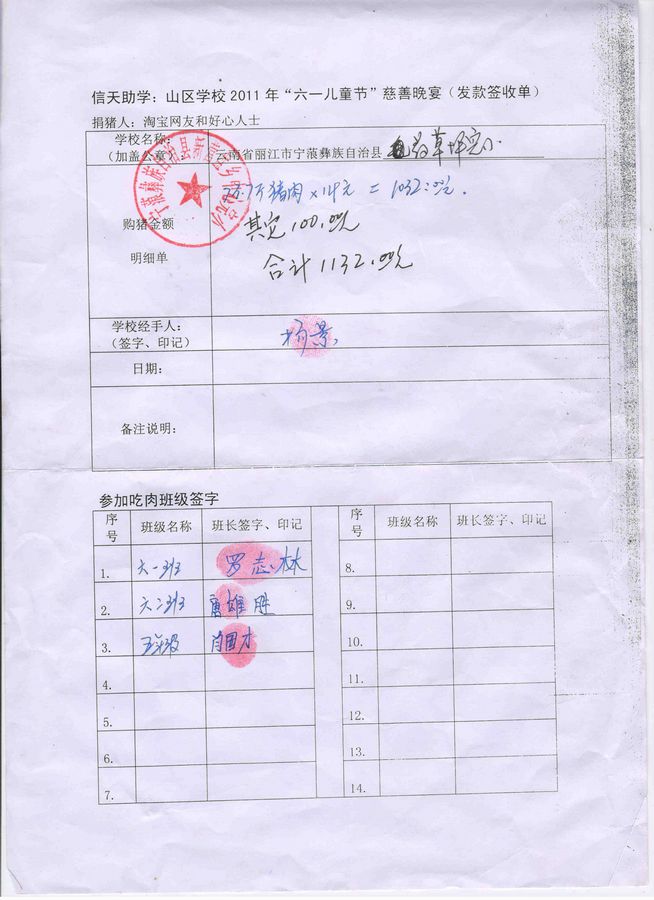 信天助学：山区学校 2011 年“六一儿童节”慈善晚宴（发款签收单）
捐猪人：淘宝网友和好心人士
学校名称：
（加盖公章）
云南省丽江市宁蒗彝族自治县 草坪完小
宁蒗彝族自治县新营盘乡
猪肉 × 14元 = 1032.00元.
购猪金额
其它 100.00元
明细单
合计 1132.00元
学校经手人：
（签字、印记）
杨景
日期：
备注说明：
参加吃肉班级签字
序号 班级名称 班长签字、印记 序号 班级名称 班长签字、印记
1. 六一班 罗志林 8.
2. 六二班 唐雄胜 9.
3. 五年级 肖国才 10.
4. 11.
5. 12.
6. 13.
7. 14.